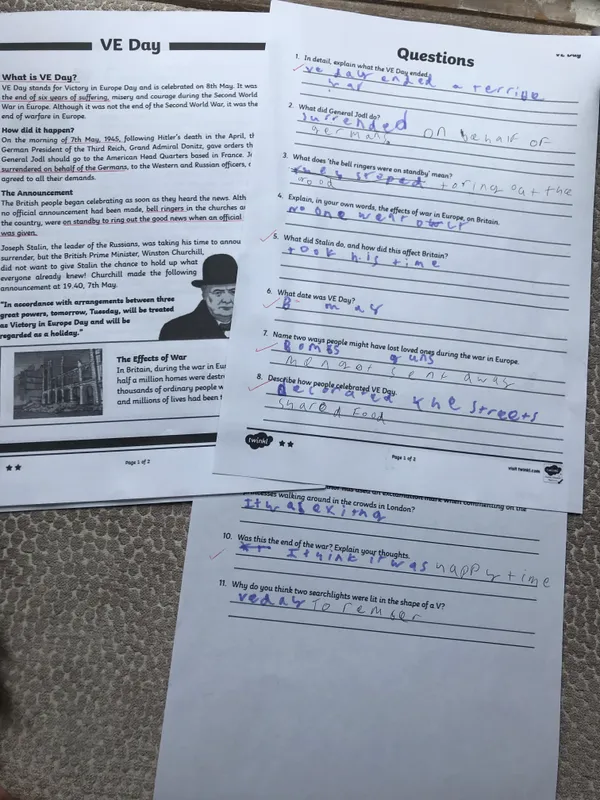 VE Day
What is VE Day?
VE Day stands for Victory in Europe Day and is celebrated on 8th May. It was
the end of six years of suffering, misery and courage during the Second World
War in Europe. Although it was not the end of the Second World War, it was the
end of warfare in Europe.
How did it happen?
On the morning of 7th May, 1945, following Hitler's death in the April, th
German President of the Third Reich, Grand Admiral Donitz, gave orders th
General Jodl should go to the American Head Quarters based in France. J
surrendered on behalf of the Germans, to the Western and Russian officers,
agreed to all their demands.
The Announcement
The British people began celebrating as soon as they heard the news. Alth
no official announcement had been made, bell ringers in the churches ar
the country, were on standby to ring out the good news when an official
was given.
Joseph Stalin, the leader of the Russians, was taking his time to annou
surrender, but the British Prime Minister, Winston Churchill,
did not want to give Stalin the chance to hold up what
everyone already knew! Churchill made the following
announcement at 19.40, 7th May.
"In accordance with arrangements between three
great powers, tomorrow, Tuesday, will be treated
as Victory in Europe Day and will be
regarded as a holiday."
The Effects of War
In Britain, during the war in Eur
half a million homes were destr
thousands of ordinary people w
and millions of lives had been
Page 1 of 2
VE Day
Questions
1. In detail, explain what the VE Day ended.
ve day ended a terrige
war
2. What did General Jodl do?
Surrended on behalf of
germans
3. What does 'the bell ringers were on standby' mean?
toring out the
good
4. Explain, in your own words, the effects of war in Europe, on Britain.
no one
5. What did Stalin do, and how did this affect Britain?
took his time
6. What date was VE Day?
8 may
7. Name two ways people might have lost loved ones during the war in Europe.
Bombs guns
men got sent away
8. Describe how people celebrated VE Day.
Decorated the streets
shared food
twinkl
Page 1 of 2
visit twinkl.com
has used an exclamation mark when commenting on the
esses walking around in the crowds in London?
Itwas exiting
10. Was this the end of the war? Explain your thoughts.
I think it was happy time
11. Why do you think two searchlights were lit in the shape of a V?
veday To rember